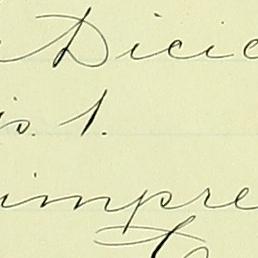 Dicic
is. 1.
impre